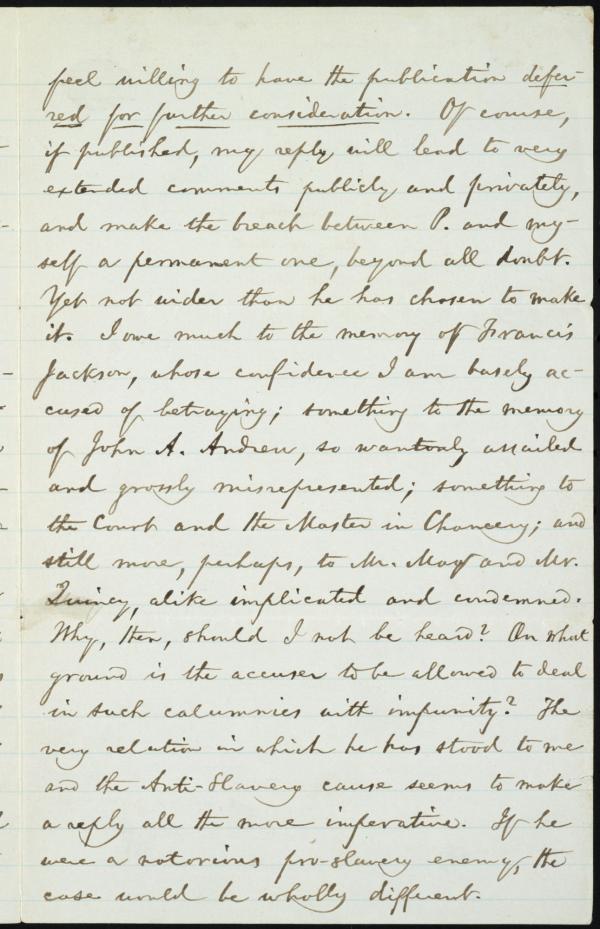 feel willing to have the publication defer-
red for further consideration. Of course,
if published, my reply will lead to very
extended comments publicly and privately,
and make the breach between P. and my-
self a permanent one, beyond all doubt.
Yet not wider than he has chosen to make
it. I owe much to the memory of Francis
Jackson, whose confidence I am basely ac-
cused of betraying; something to the memory
of John A. Andrew, so wantonly assailed
and grossly misrepresented; something to
the Court and the Master in Chancery; and
still more, perhaps, to Mr. May and Mr.
Quincy, alike implicated and condemned.
Why, then, should I not be heard? On what
ground is the accuser to be allowed to deal
in such calumnies with impunity? The
very relation in which he has stood to me
and the Anti-Slavery cause seems to make
a reply all the more imperative. If he
were a notorious pro-slavery enemy, the
case would be wholly different.